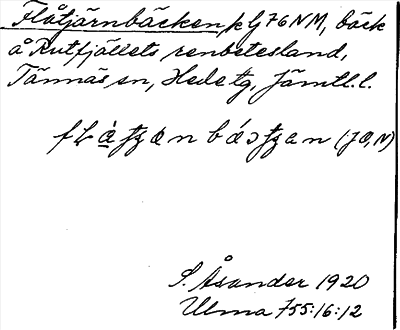 Flåtjärnbäcken, k lj 76 NM, bäck
å Rutfjällets renbetesland,
Tännäs sn, Hede tg, Jämtl. l.
(JO, N)
S. Åsander 1920
Ulma 755:16:12